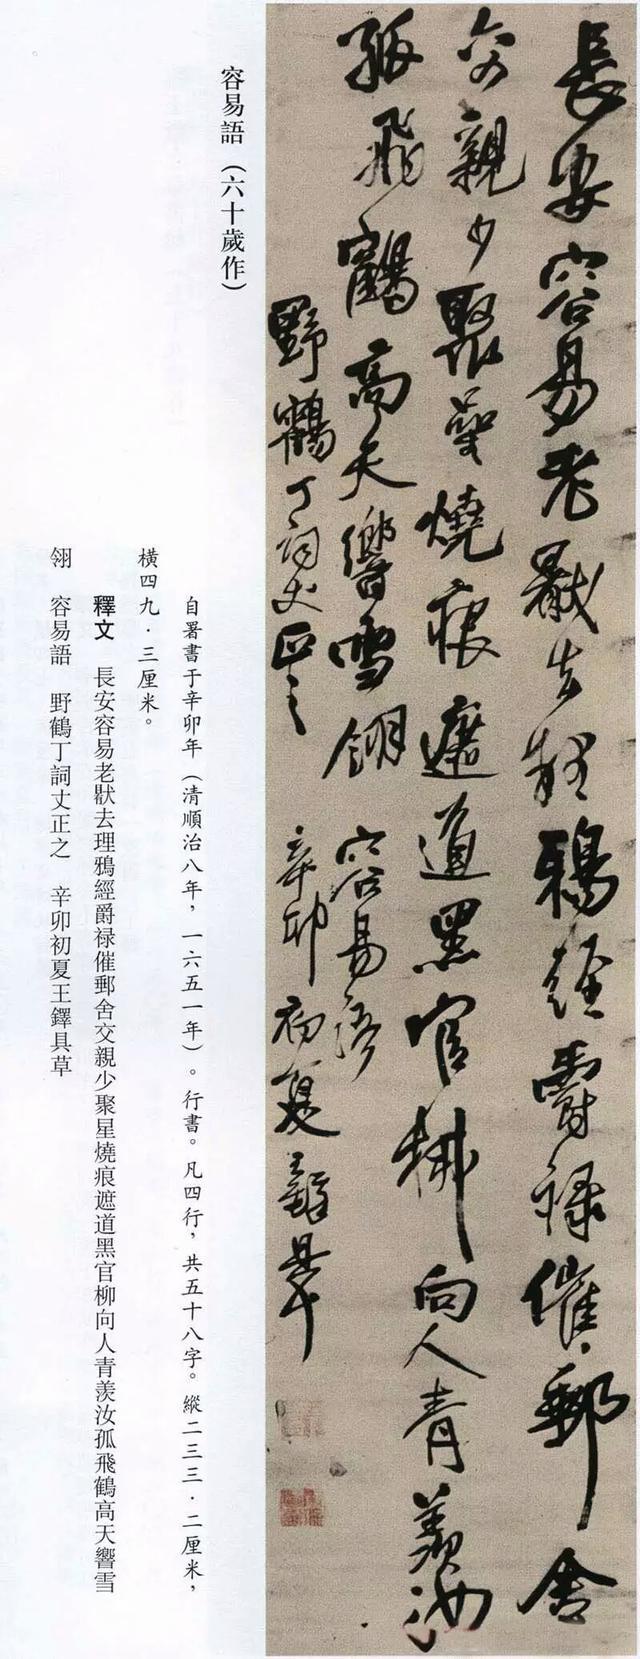 長安容易老猒去理鴉經爵禄催郵舍
交親少聚星燒痕遮道黑官柳向人青羨汝
孤飛鶴高天響雪翎 容易語
野鶴丁詞丈正之 辛卯初夏王鐸具草
容易語（六十歲作）
自署書于辛卯年（清順治八年，一六五一年）。行書。凡四行，共五十八字。縱二三三·二厘米，
橫四九·三厘米。
釋文 長安容易老猒去理鴉經爵禄催郵舍交親少聚星燒痕遮道黑官柳向人青羨汝孤飛鶴高天響雪
翎 容易語 野鶴丁詞丈正之 辛卯初夏王鐸具草